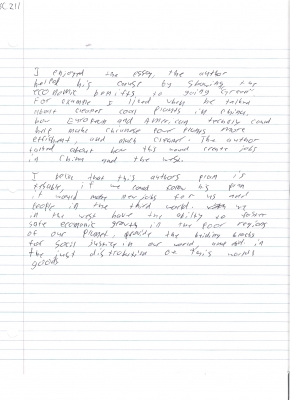 I enjoyed the essay, the author
helped his cause by showing the
economic benifits to going "green"
For example I liked when he talked
about cleaner coal plants in China,
how European and American could
help make chinese power plants more
efficient, and much cleaner. The author
talked about how this would create jobs
in China and the west.
I think that this authors plan is
if we could follow his plan
it would make new jobs for us and
people in the third world. we
in the west have the ability to foster
safe economic growth in the poor regions
of our planet, provide the building blocks
for social justice in our world, and in
the just distribution of this worlds
goods